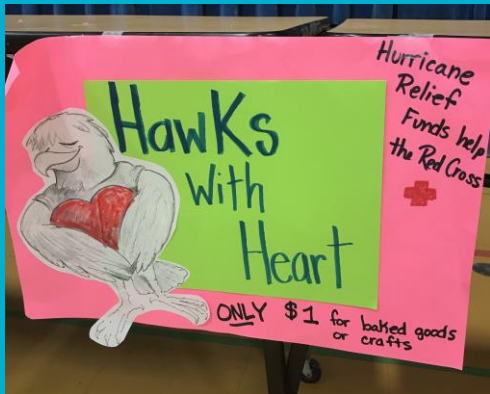 Hawks
with
Heart
Hurricane
Relief
Funds help
the Red Cross
ONLY $1 for baked goods
or crafts